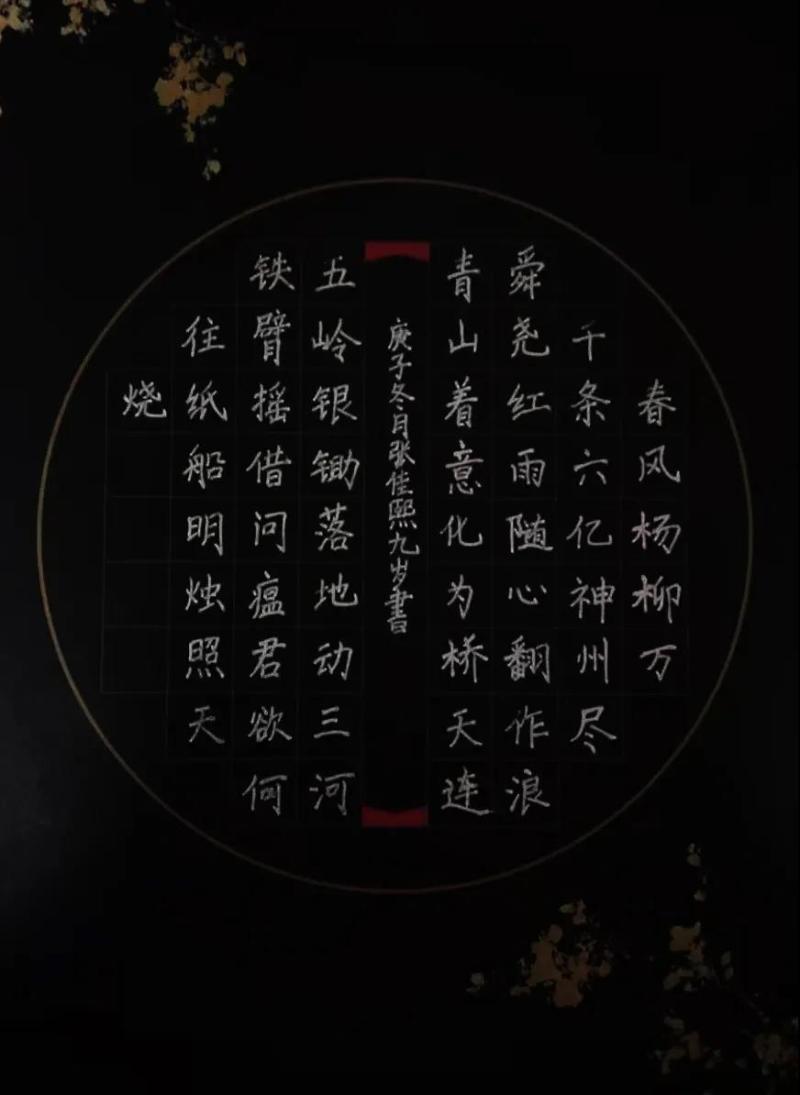 春风杨柳万
千条六亿神州尽
舜尧红雨随心翻作浪
青山着意化为桥天连
庚子冬月张佳熙九岁書
五岭银锄落地动三河
铁臂摇借问瘟君欲何
往纸船明烛照天
烧